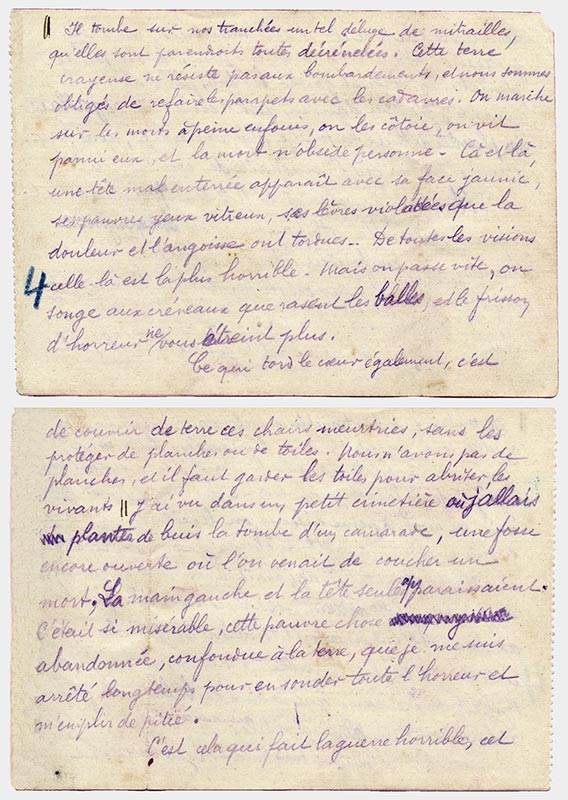 Il tombe sur nos tranchées un tel déluge de mitrailles,
qu'elles sont par endroits toutes décrénelées. Cette terre
crayeuse ne résiste pas aux bombardements, et nous sommes
obligés de refaire les parapets avec les cadavres. On marche
sur les morts à peine enfouis, on les côtoie, on vit
parmi eux, et la mort n'obsède personne - Çà et là,
une tête mal enterrée apparaît avec sa face jaunie,
ses pauvres yeux vitreux, ses lèvres violacées que la
douleur et l'angoisse ont tordues - De toutes les visions
4 celle-là est la plus horrible - Mais on passe vite, on
songe aux créneaux que rasent les balles, et le frisson
d'horreur ne vous étreint plus.
Ce qui tord le cœur également, c'est
de couvrir de terre ces chairs meurtries, sans les
protéger de planches ou de toiles. Nous n'avons pas de
planches, et il faut garder les toiles pour abriter les
vivants || J'ai vu dans un petit cimetière où j'allais
planter de buis la tombe d'un camarade, une fosse
encore ouverte où l'on venait de coucher un
mort. La main gauche et la tête seules apparaissaient.
C'était si misérable, cette pauvre chose
abandonnée, confondue à la terre, que je me suis
arrêté longtemps pour en sonder toute l'horreur et
m'emplir de pitié.
C'est cela qui fait la guerre horrible, cet